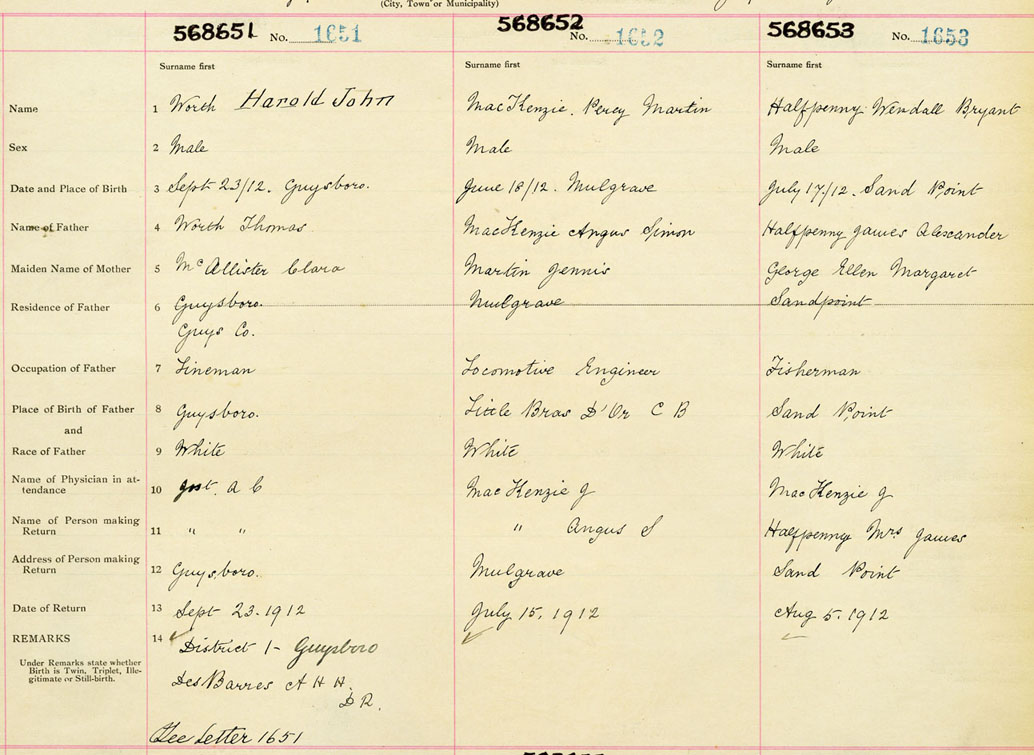 (City, Town or Municipality)
568651 No. 1651 568652 No. 1652 568653 No. 1653
Surname first Surname first Surname first
Name 1 Worth Harold John MacKenzie. Percy Martin Halfpenny Wendall Bryant
Sex 2 Male Male Male
Date and Place of Birth 3 Sept 23/12. Guysboro. June 18/12. Mulgrave July 17/12. Sand Point
Name of Father 4 Worth Thomas MacKenzie Angus Simon Halfpenny James Alexander
Maiden Name of Mother 5 McAllister Clara Martin Jennis George Ellen Margaret
Residence of Father 6 Guysboro. Mulgrave Sandpoint
Guys Co.
Occupation of Father 7 Lineman Locomotive Engineer Fisherman
Place of Birth of Father 8 Guysboro. Little Bras D'Or C B Sand Point
and
Race of Father 9 White White White
Name of Physician in at-
tendance 10 A C MacKenzie J MacKenzie J
Name of Person making
Return 11 " " " Angus S Halfpenny Mrs James
Address of Person making
Return 12 Guysboro. Mulgrave Sand Point
Date of Return 13 Sept 23. 1912 July 15, 1912 Aug 5. 1912
REMARKS 14 District 1- Guysboro
Under Remarks state whether
Birth is Twin, Triplet, Ille-
gitimate or Still-birth.
DesBarres A H H.
D R.
See Letter 1651